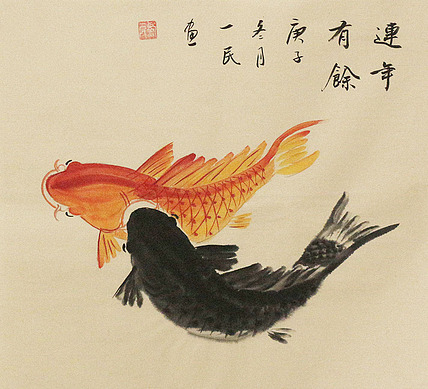 連年
有餘
庚子
冬月
一民
画